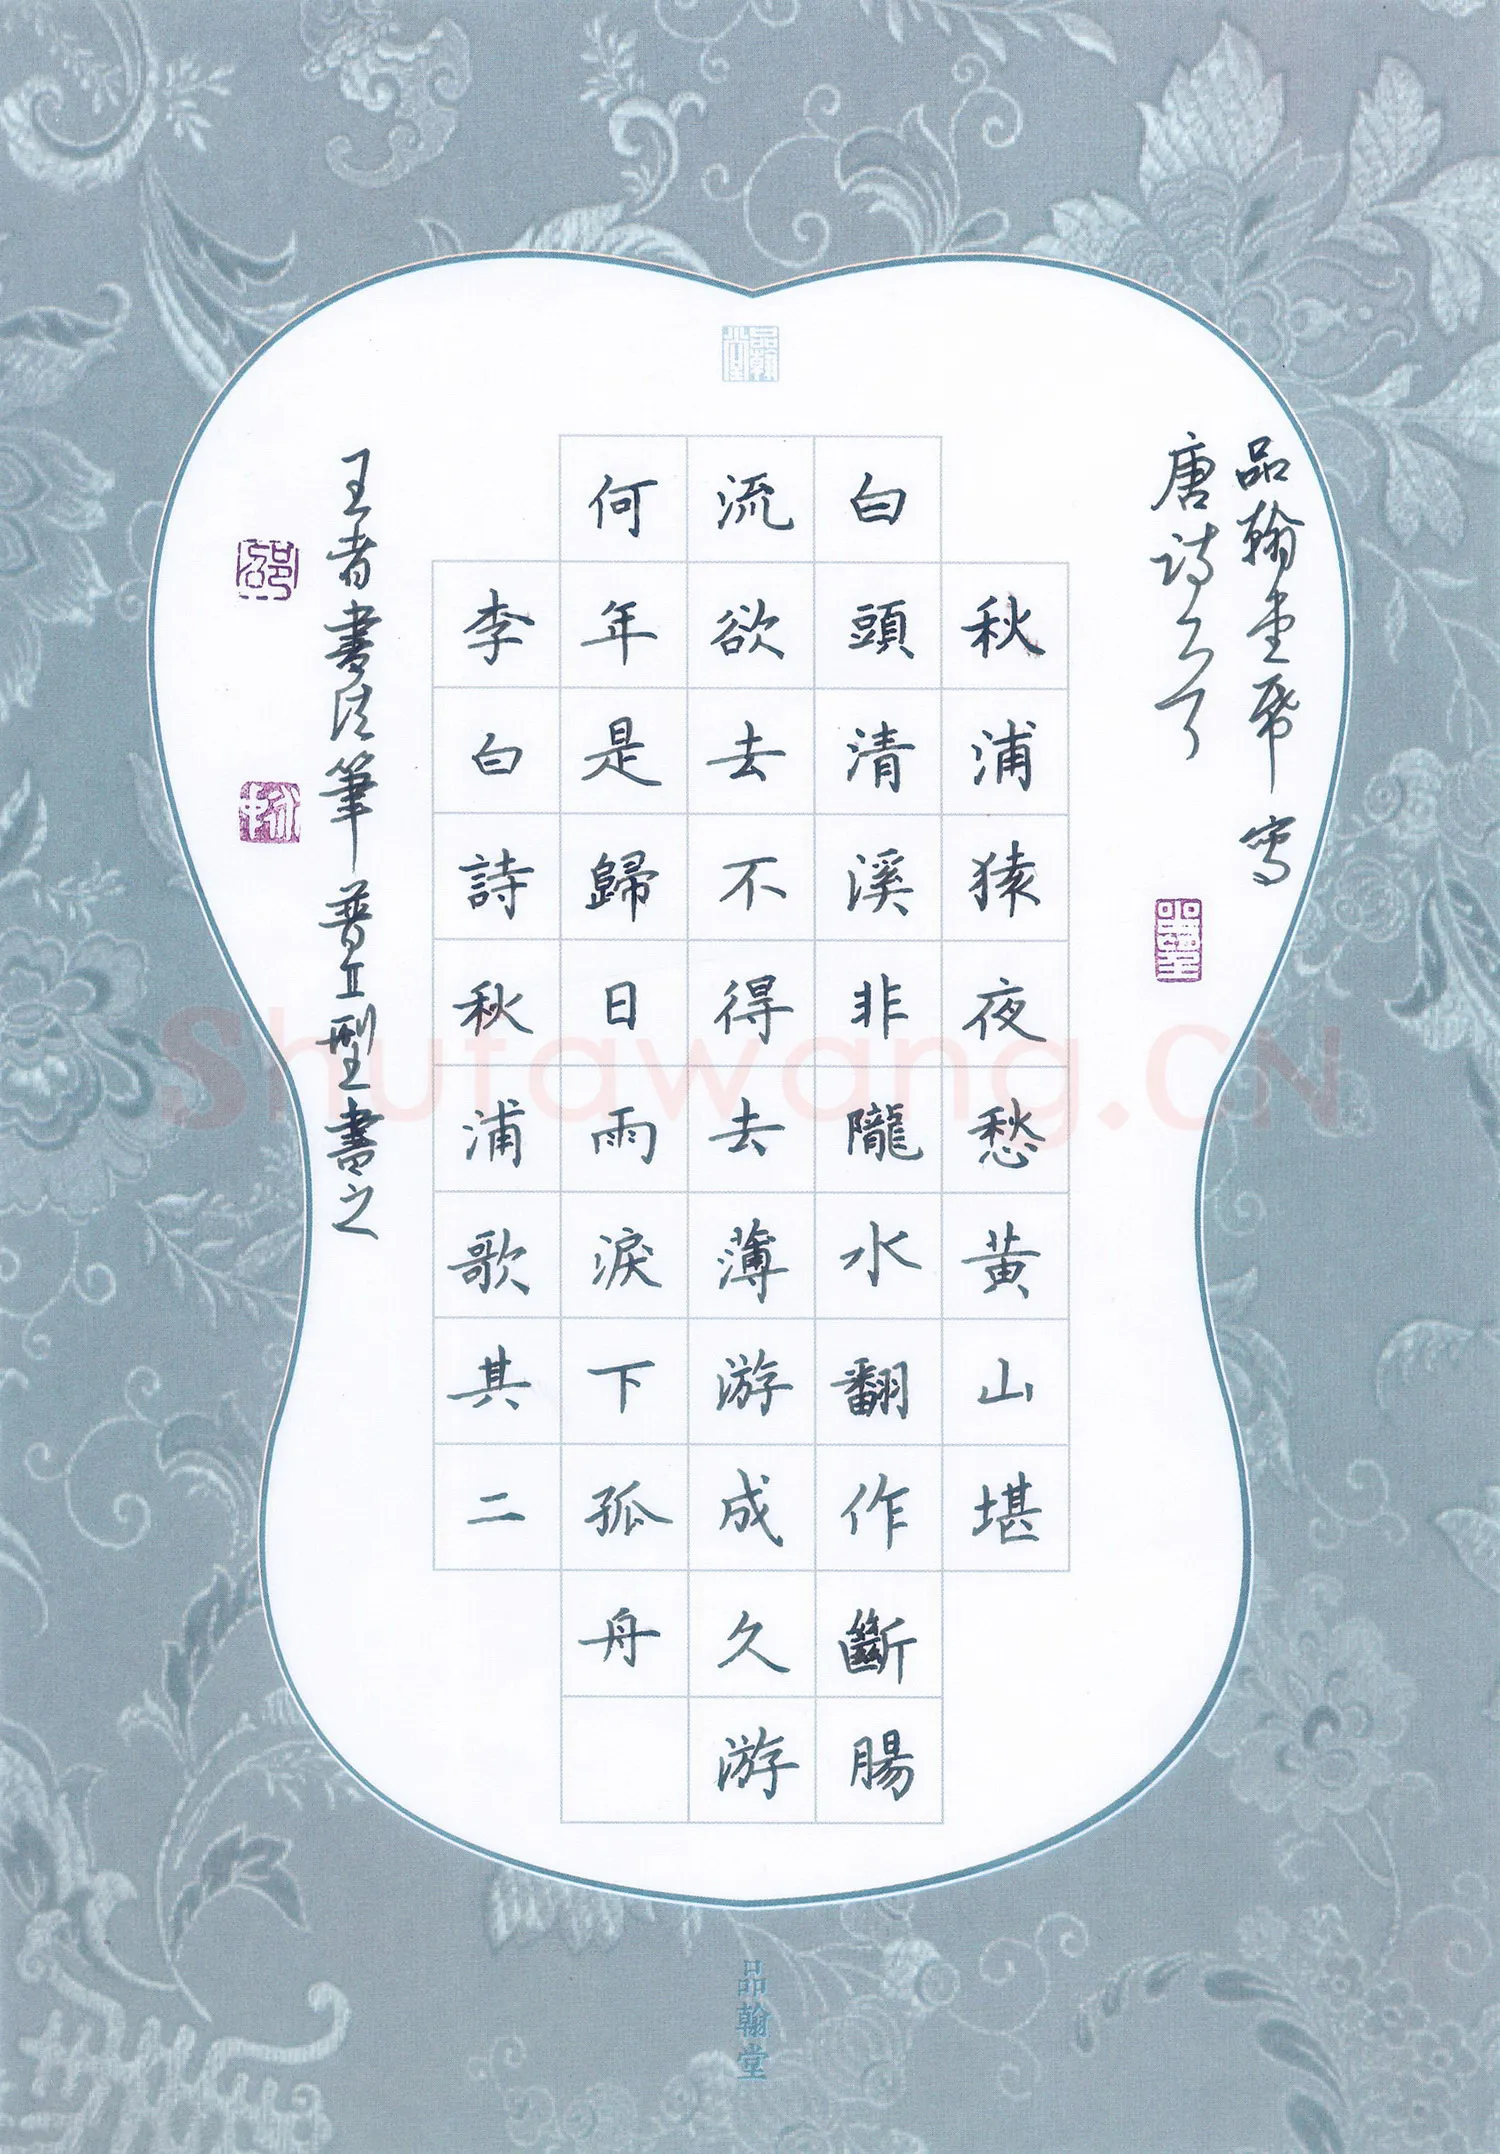 品翰堂
品翰堂帋寫
唐诗
秋浦猿夜愁黄山堪
白頭清溪非隴水翻作斷腸
流欲去不得去薄游成久游
何年是歸日雨淚下孤舟
李白詩秋浦歌其二
王者書法筆普Ⅱ型書之
Shufawang.CN
品翰堂